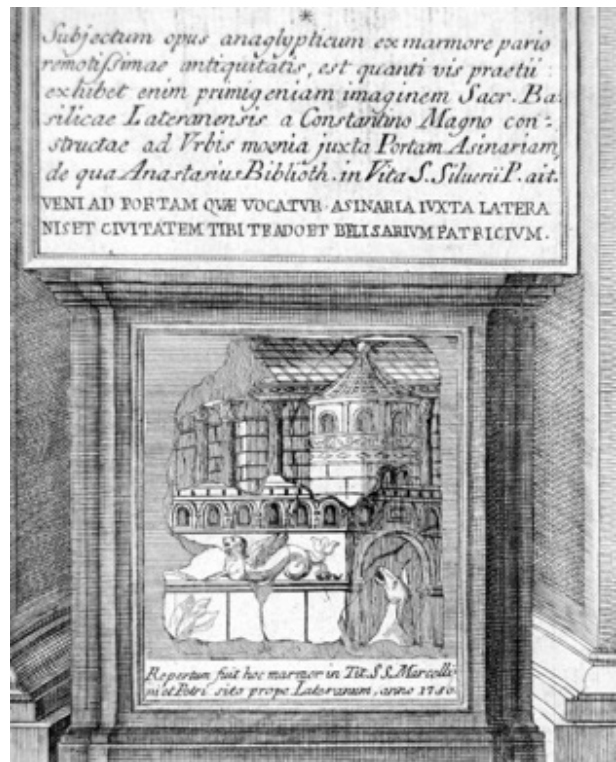 *
Subjectum opus anaglypticum ex marmore pario
remotissimae antiquitatis, est quanti vis praetii
exhibet enim primigeniam imaginem Sacr. Ba-
silicae Lateranensis a Constantino Magno con-
structae ad Urbis moenia juxta Portam Asinariam,
de qua Anastasius Biblioth. in Vita S. Siluerii P. ait.
VENI AD PORTAM QVÆ VOCATVR ASINARIA IVXTA LATERA
NIS ET CIVITATEM TIBI TRADO ET BELISARIVM PATRICIVM.
Repertum fuit hoc marmor in Tit. S S. Marcelli
ni et Petri sito prope Lateranum, anno